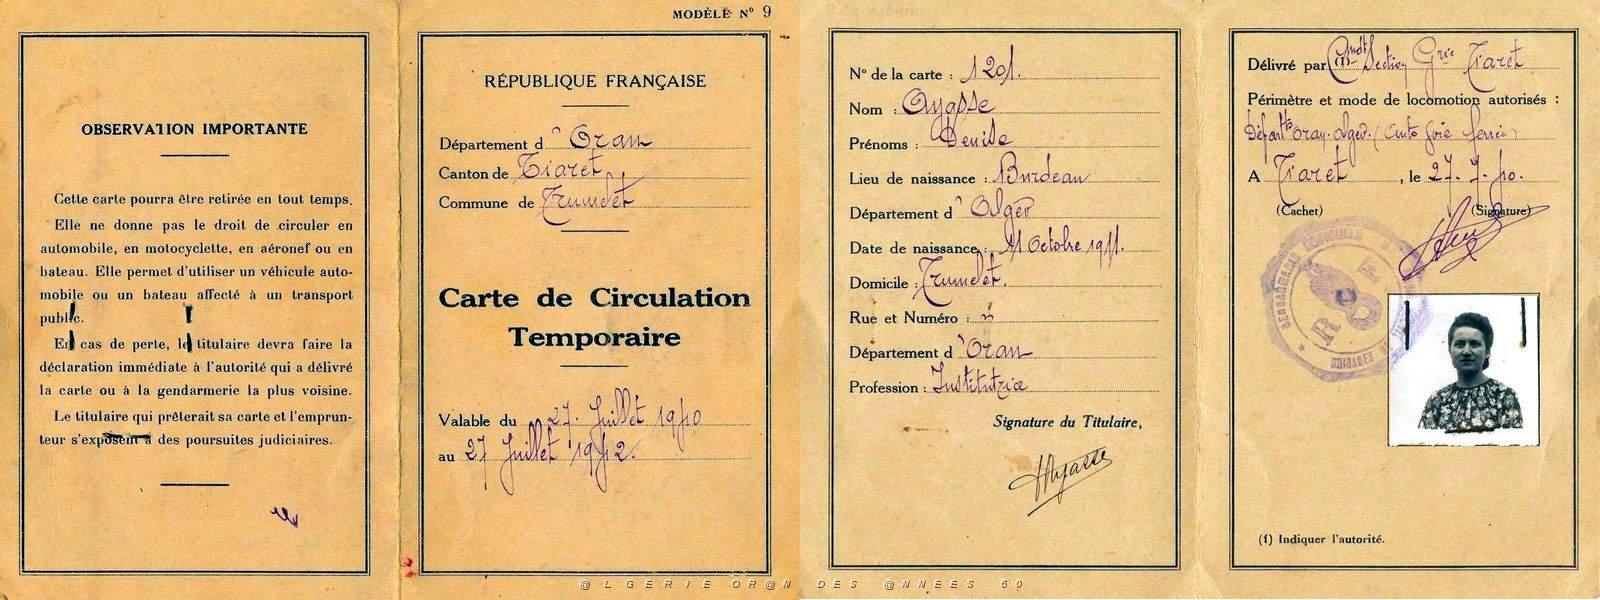 OBSERVATION IMPORTANTE
Cette carte pourra être retirée en tout temps.
Elle ne donne pas le droit de circuler en
automobile, en motocyclette, en aéronef ou en
bateau. Elle permet d'utiliser un véhicule auto-
mobile ou un bateau affecté à un transport
public.
En cas de perte, le titulaire devra faire la
déclaration immédiate à l'autorité qui a délivré
la carte ou à la gendarmerie la plus voisine.
Le titulaire qui prêterait sa carte et l'emprun-
teur s'exposent à des poursuites judiciaires.
MODÈLE Nº 9
RÉPUBLIQUE FRANÇAISE
Département d'Oran
Canton de Tiaret
Commune de Trumelet
Carte de Circulation
Temporaire
Valable du 27 Juillet 1940
au 27 Juillet 1942.
Nº de la carte : 1201.
Nom : Ayasse
Prénoms : Denise
Lieu de naissance : Burdeau
Département d'Alger
Date de naissance : 11 Octobre 1911.
Domicile : Trumelet.
Rue et Numéro : "
Département d'Oran
Profession : Institutrice
Signature du Titulaire,
Ayasse
Délivré par (1) Cmdt Section Grie Tiaret
Périmètre et mode de locomotion autorisés :
Défartts Oran-Alger. (Auto Voie ferrée)
A Tiaret, le 27.7.40.
(Cachet) (Signature)
GENDARMERIE
R F
BRIGADES DE
(1) Indiquer l'autorité.
@LGERIE OR@N DES @NNEES 50